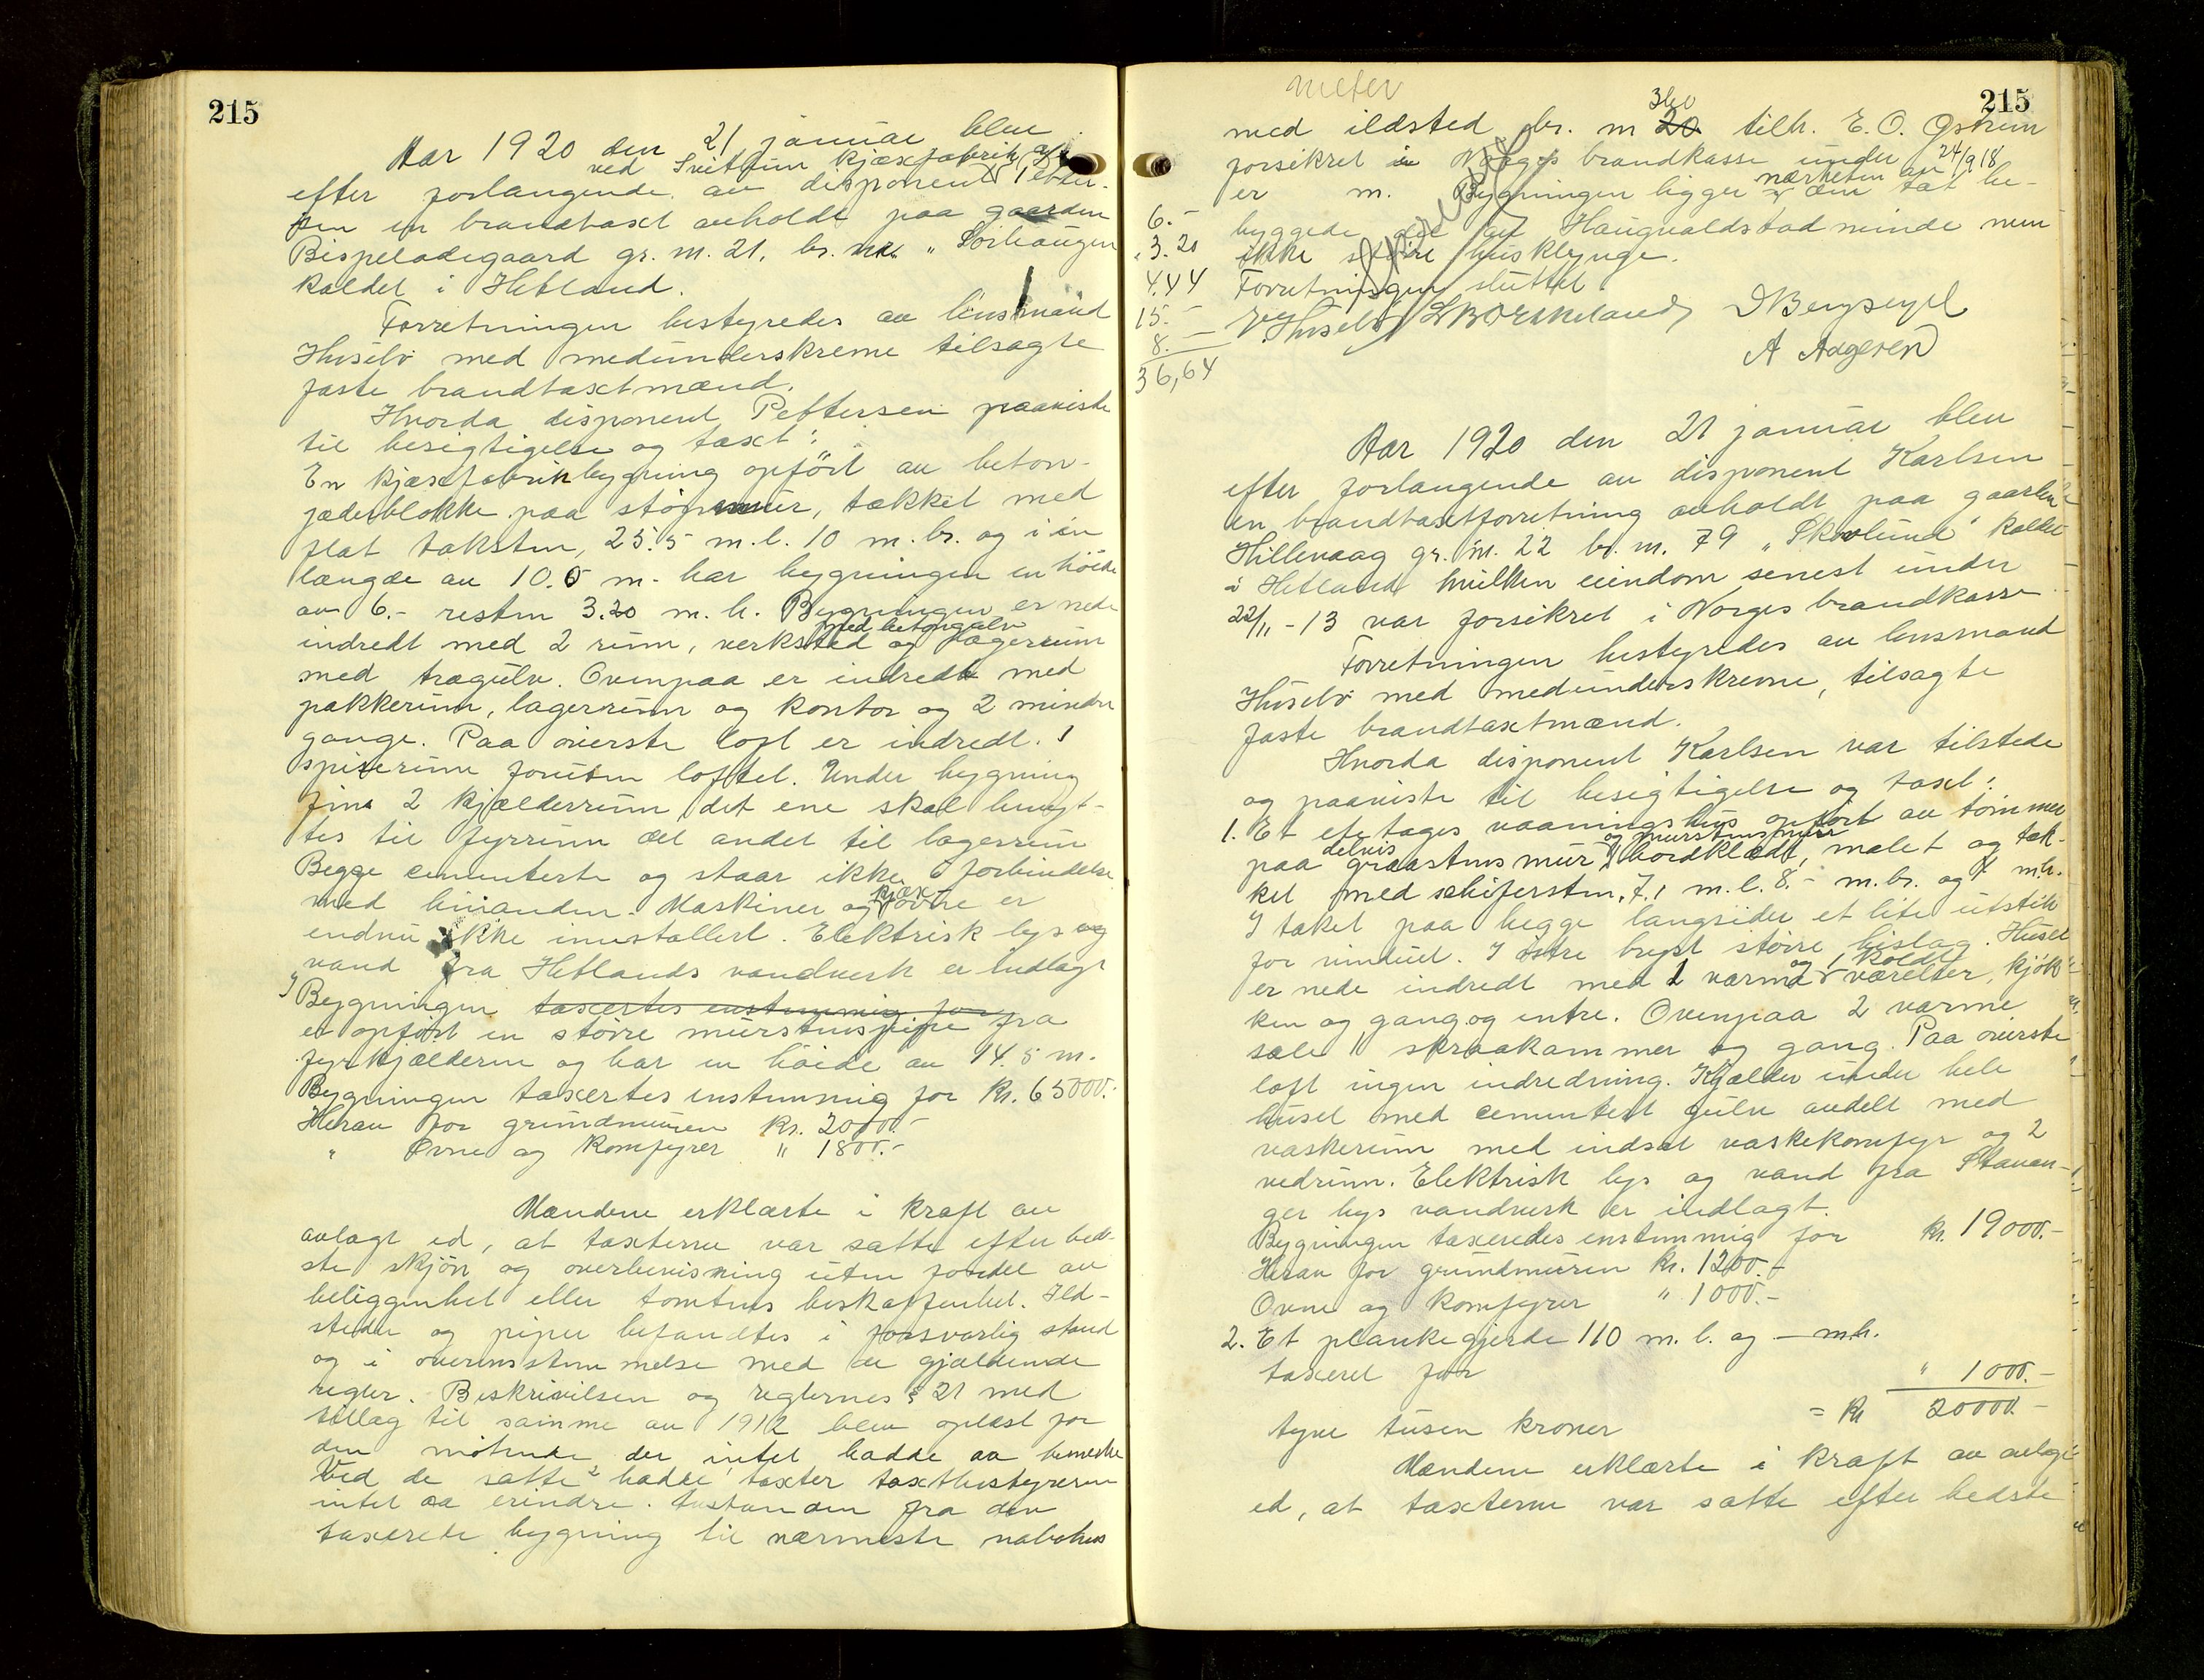 215
Aar 1920 den 21 januar blev
ved kjæxfabrik a/s
efter forlangende av disponent
sen en brandtaxt avholdt paa gaarden
Bispeladegaard gr. nr. 21, br. nr. "Solhaugen
kaldet i Hetland.
Forretningen bestyredes av lensmand
Husebø med medunderskrevne tilsagte
faste brandtaxtmænd.
Hvorda disponent Pettersen paaviste
til besigtigelse og taxt:
En kjæxfabrikbygning opført av beton-
jæderblokke paa støpemur, tækket med
flat taksten, 25.5 m.l. 10 m. br. og i en
længde av 10.5 m. har bygningen en høide
av 6.- resten 3.20 m. h. Bygningen er nede
med betongulv
indredt med 2 rum, verksted og lagerrum
med trægulv. Ovenpaa er indredt med
pakkerum, lagerrum og kontor og 2 mindre
gange. Paa øverste loft er indredt 1
spiserum foruten loftet. Under bygning
fins 2 kjælderrum det ene skal benyt-
tes til fyrrum det andet til lagerrum
Begge cementerte og staar ikke i forbindelse
kjæx-
med hinanden. Maskiner og ovne er
endnu ikke innstallert. Elektrisk lys og
vand fra Hetlands vandverk er indlagt
I Bygningen taxertes enstemmig for
er opført en større murstenspipe fra
fyrkjælderen og har en høide av 14.5 m.
Bygningen taxertes enstemmig for Kr. 65000.-
Herav for grundmuren Kr. 2000.-
" Ovne og Komfyrer " 1800.-
Mændene erklærte i kraft av
avlagt ed, at taxterne var satte efter bed-
ste skjøn og overbevisning uten fordel av
beliggenhet eller tomtens beskaffenhet. Ild-
steder og piper befandtes i forsvarlig stand
og i overensstemmelse med de gjældende
regler. Beskrivelsen og reglernes § 21 med
tillæg til samme av 1912 blev oplæst for
den møtende der intet hadde aa bemerke
Ved de satte hadde taxter taxtbestyreren
intet aa erindre. Avstanden fra den
taxerede bygning til nærmeste nabohus
meter
215
360
med ildsted br. nr 20 tilh. E. O. Østrem
forsikret i Norges brandkasse under 24/9 18
nærheten av
er m. Bygningen ligger i den tæt be-
6.-
byggede del av Haugvaldstad minde men
3.20
ikke større husklynge.
4.44
Forretningen sluttet
15.-
Husebø D Bergseyel
8.-
A Aageren
36,64
Aar 1920 den 21 januar blev
efter forlangende av disponent Karlsen
en brandtaxtforretning avholdt paa gaarden
Hillevaag gr. nr. 22 br. nr. 79 "Skoglund" kaldet
i Hetland hvilken eiendom senest under
22/11-13 var forsikret i Norges brandkasse
Forretningen bestyredes av lensmand
Husebø med medunderskrevne, tilsagte
faste brandtaxtmænd.
Hvorda disponent Karlsen var tilstede
og paaviste til besigtigelse og taxt:
1. Et etages vaaningshus opført av tømmer
delvis og murstensmur
paa graastensmur bordklædt, malet og tæk-
ket med schifersten, 7.1 m.l. 8.- m.br. og 7 m.h.
I taket paa begge langsider et lite utstik
for vinduet. I østre bryst større bislag. Huset
og 1 koldt
er nede indredt med 2 varme værelser, kjøk-
ken og gang og entre. Ovenpaa 2 varme
sale 1 skraakammer og gang. Paa øverste
loft ingen indredning. Kjælder under hele
huset med cementert gulv avdelt med
vaskerum med indsat vaskekomfyr og 2
vedrum. Elektrisk lys og vand fra Stavan-
ger bys vandverk er indlagt.
Bygningen taxeredes enstemmig for kr. 19000.-
Herav for grundmuren Kr. 1200.-
Ovne og Komfyrer " 1000.-
2. Et plankegjerde 110 m. l. og — m.h.
taxeret for " 1000.-
= Kr 20000.-
tyve tusen kroner
Mændene erklærte i kraft av avlagt
ed, at taxterne var satte efter bedste